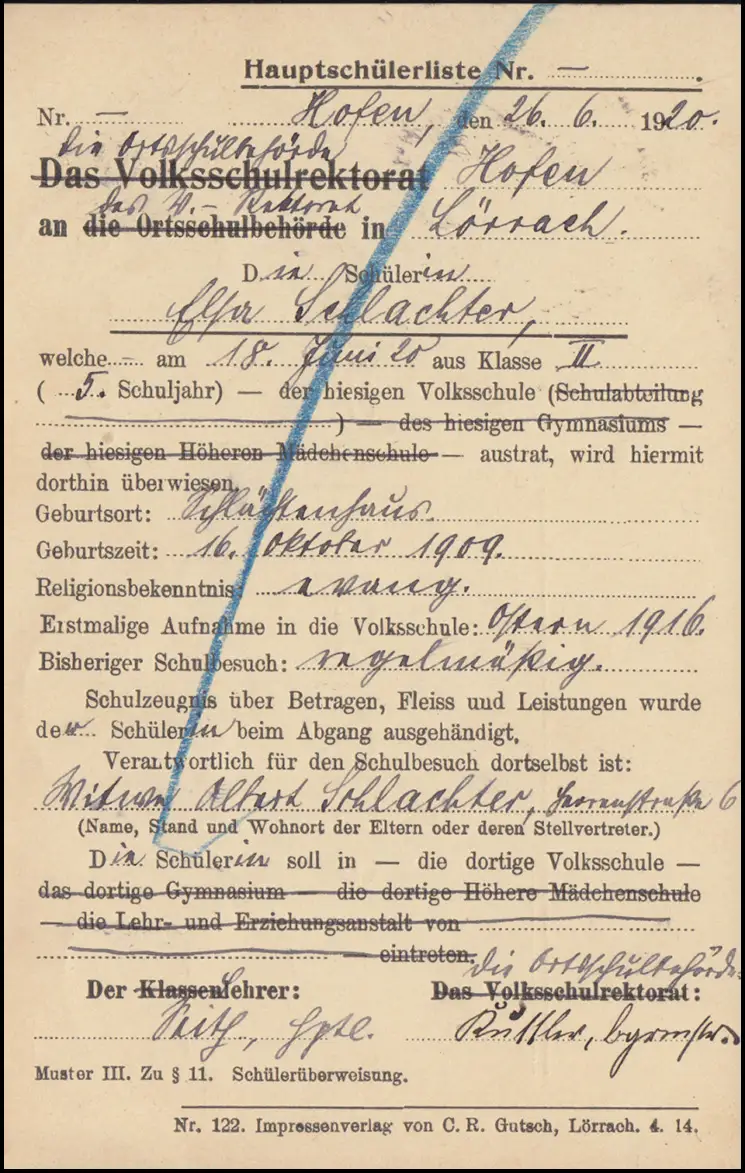 Hauptschülerliste Nr. —
Nr. — Hofen, den 26. 6. 1920.
die Ortsschulbehörde
Das Volksschulrektorat Hofen
das V.- Rektorat
an die Ortsschulbehörde in Lörrach.
Die Schülerin
Elsa Schlachter,
welche - am 18. Juni 20 aus Klasse II
( 5. Schuljahr) — der hiesigen Volksschule (Schulabteilung
) — des hiesigen Gymnasiums —
der hiesigen Höheren Mädchenschule — austrat, wird hiermit
dorthin überwiesen.
Geburtsort: Schlächtenhaus.
Geburtszeit: 16. Oktober 1909.
Religionsbekenntnis: evang.
Erstmalige Aufnahme in die Volksschule: Ostern 1916.
Bisheriger Schulbesuch: regelmäßig.
Schulzeugnis über Betragen, Fleiss und Leistungen wurde
der Schülerin beim Abgang ausgehändigt.
Verantwortlich für den Schulbesuch dortselbst ist:
Witwe Albert Schlachter, Herrenstraße 6
(Name, Stand und Wohnort der Eltern oder deren Stellvertreter.)
Die Schülerin soll in — die dortige Volksschule —
das dortige Gymnasium — die dortige Höhere Mädchenschule
— die Lehr- und Erziehungsanstalt von
— eintreten.
die Ortsschulbehörde
Der Klassenlehrer: Das Volksschulrektorat:
Seith, Hptl. Kuttler, bgrmstr.
Muster III. Zu § 11. Schülerüberweisung.
Nr. 122. Impressenverlag von C. R. Gutsch, Lörrach. 4. 14.